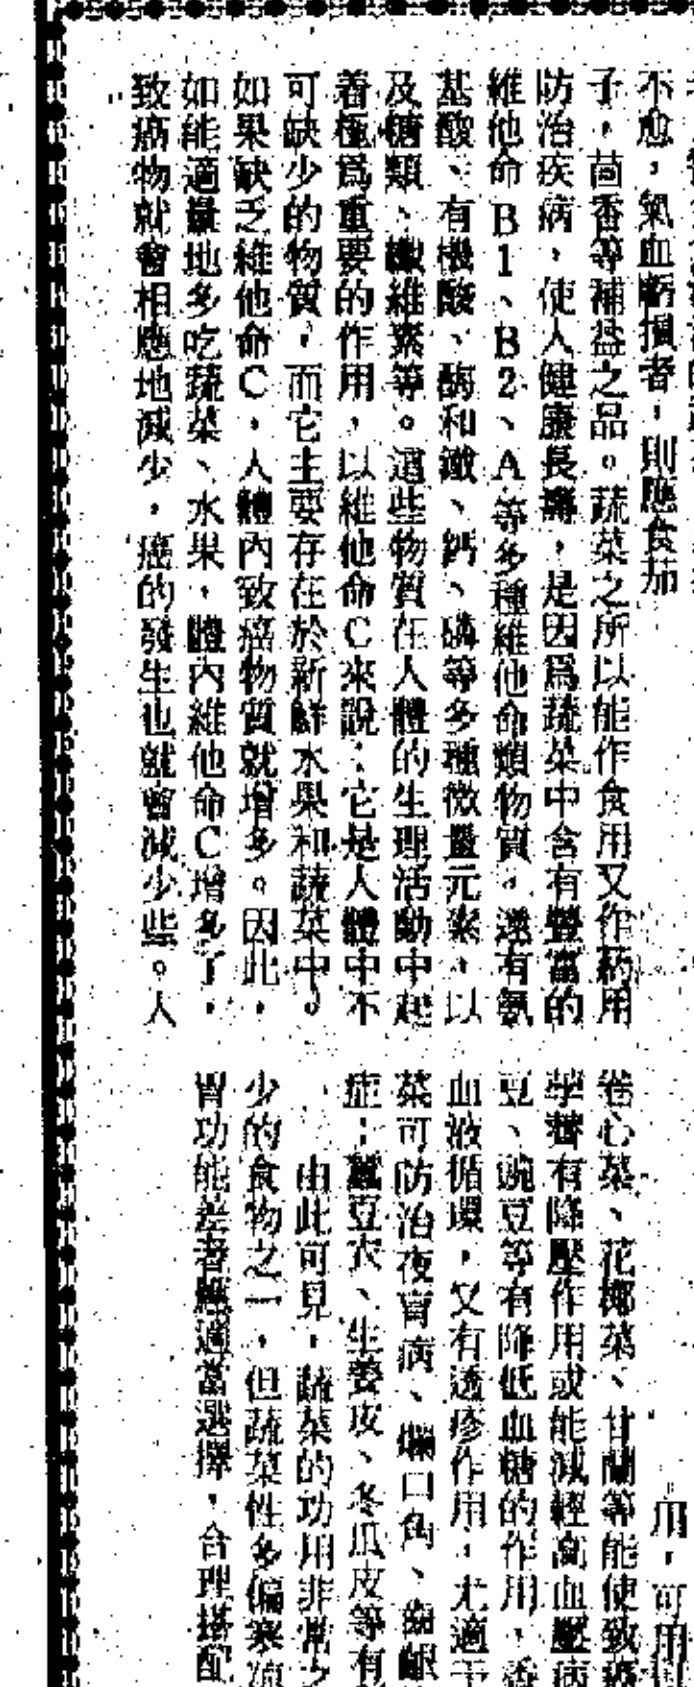 不愈，氣血虧損者，則應食茄
子，茴香等補益之品。蔬菜之所以能作食用又作葯用
防治疾病，使人健康長壽，是因爲蔬菜中含有豐富的
維他命B1、B2、A等多種維他命類物質。還有氨
基酸、有機酸、酶和鐵、鈣、磷等多種微量元素，以
及糖類、纖維素等。這些物質在人體的生理活動中起
着極爲重要的作用，以維他命C來說：它是人體中不
可缺少的物質，而它主要存在於新鮮水果和蔬菜中。
如果缺乏維他命C，人體內致癌物質就增多。因此，
如能適量地多吃蔬菜、水果，體內維他命C增多了，
致癌物就會相應地減少，癌的發生也就會減少些。人
用，可用
卷心菜、花椰菜、甘蘭等能使致癌
荸薺有降壓作用或能減輕高血壓病
豆、豌豆等有降低血糖的作用，香
血液循環，又有透疹作用，尤適于
菜可防治夜盲病、爛口角、齒齦
症；蠶豆衣、生姜皮、冬瓜皮等有
由此可見，蔬菜的功用非常之
少的食物之一，但蔬菜性多偏寒涼
胃功能差者應適當選擇，合理搭配